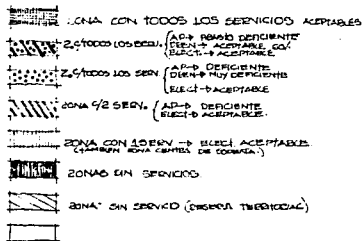 ZONA CON TODOS LOS SERVICIOS ACEPTABLES
Z.C/TODOS LOS SERV. { AP → DEFICIENTE
DREN → ACEPTABLE 60%
ELECT. → ACEPTABLE
Z.C/TODOS LOS SERV { AP → DEFICIENTE
DREN → MUY DEFICIENTE
ELECT → ACEPTABLE
ZONA C/2 SERV. { AP → DEFICIENTE
ELECT → ACEPTABLE.
ZONA CON 1 SERV → ELECT. ACEPTABLE
(TAMBIEN ZONA CENTRAL DE
ZONAS SIN SERVICIOS
ZONA SIN SERVICIO (RESERVA TERRITORIAL)